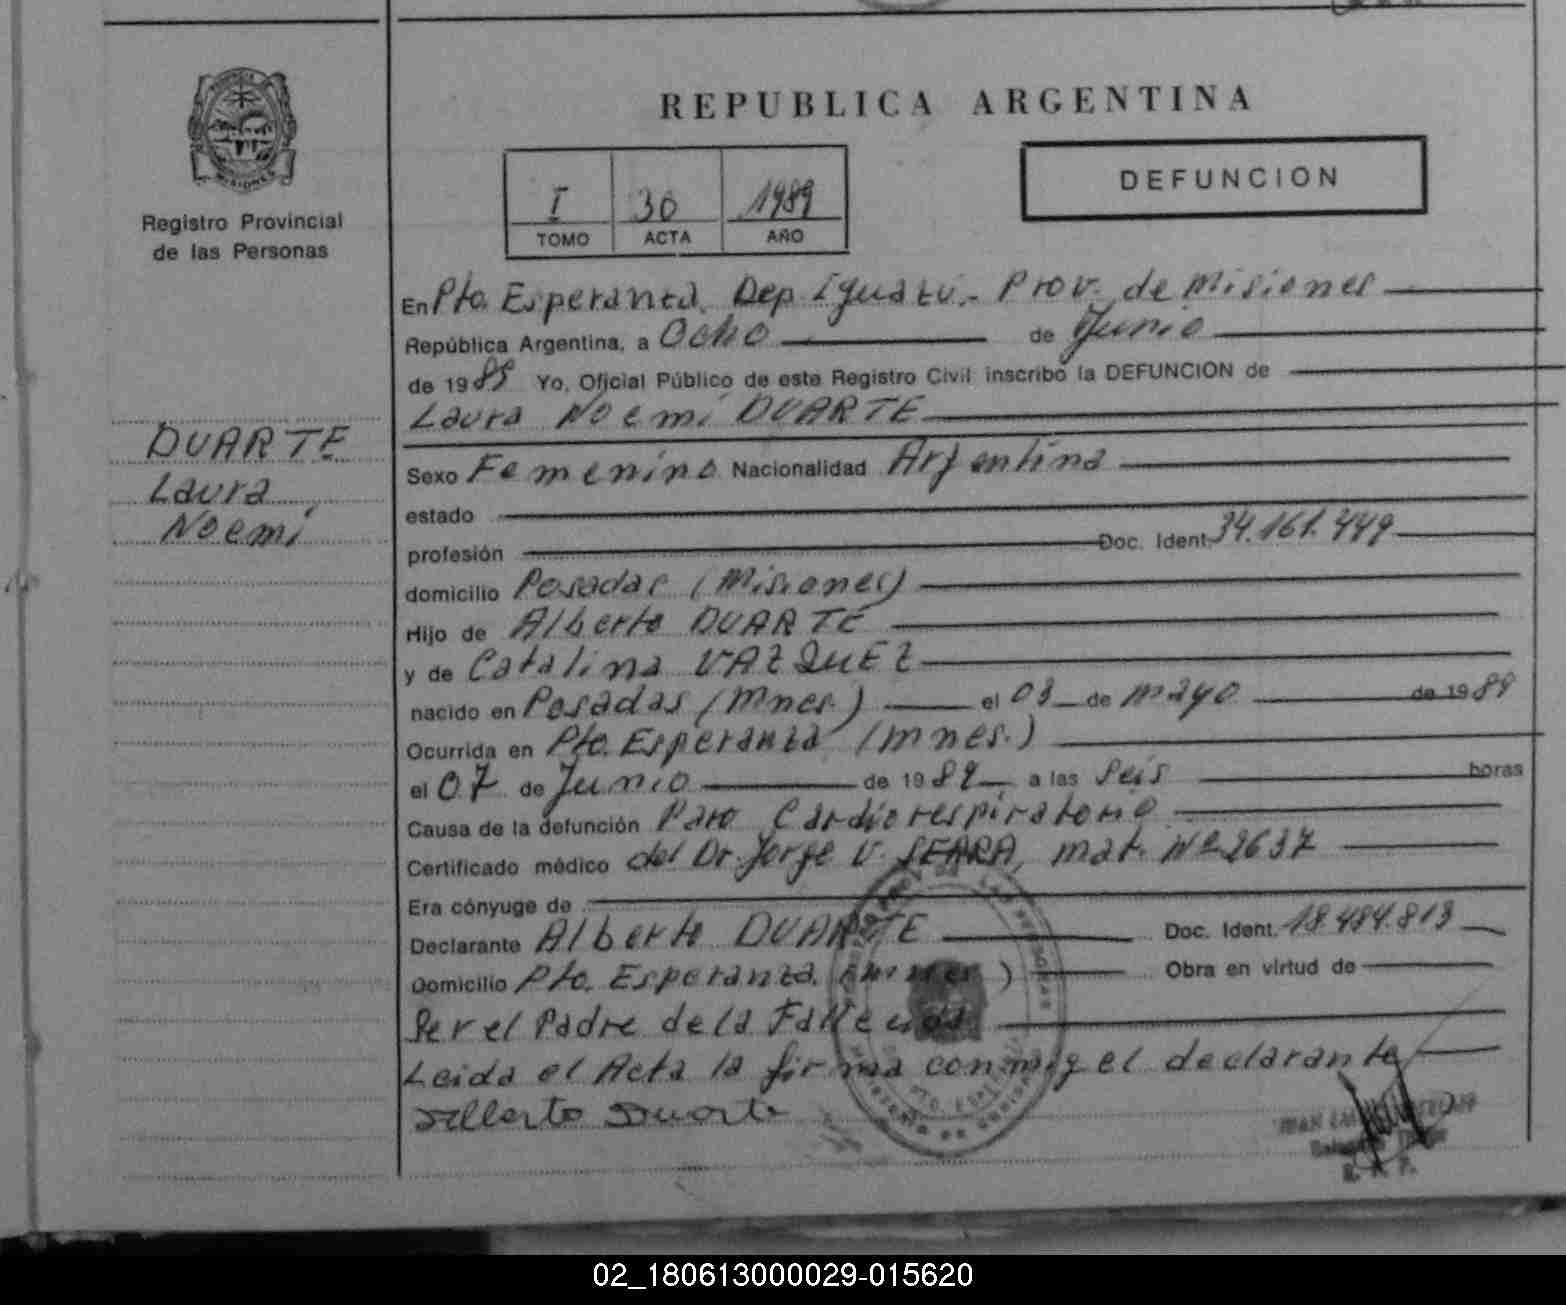 REPUBLICA ARGENTINA
MISIONES
Registro Provincial
de las Personas
I 30 1989
TOMO ACTA AÑO
DEFUNCION
En Pto. Esperanza, Dep. Iguazú.- Prov. de Misiones
República Argentina, a Ocho de Junio
de 1989 Yo, Oficial Público de este Registro Civil inscribo la DEFUNCION de
Laura Noemí DUARTE
DUARTE
Laura
Noemí
Sexo Femenino Nacionalidad Argentina
estado
profesión Doc. Ident. 34.161.449
domicilio Posadas (Misiones)
Hijo de Alberto DUARTE
y de Catalina VAZQUEZ
nacido en Posadas (Mnes.) el 03 de mayo de 1989
Ocurrida en Pto. Esperanza (mnes.)
el 07 de Junio de 1989 a las seis horas
Causa de la defunción Paro Cardiorespiratorio
Certificado médico del Dr. Jorge V. SEARA, mat. Nº 2637
Era cónyuge de
Declarante Alberto DUARTE Doc. Ident. 18.484.813
Domicilio Pto. Esperanza (mnes) Obra en virtud de
Ser el Padre de la Fallecida
Leida el Acta la firma conmigo el declarante
Alberto Duarte
02_180613000029-015620